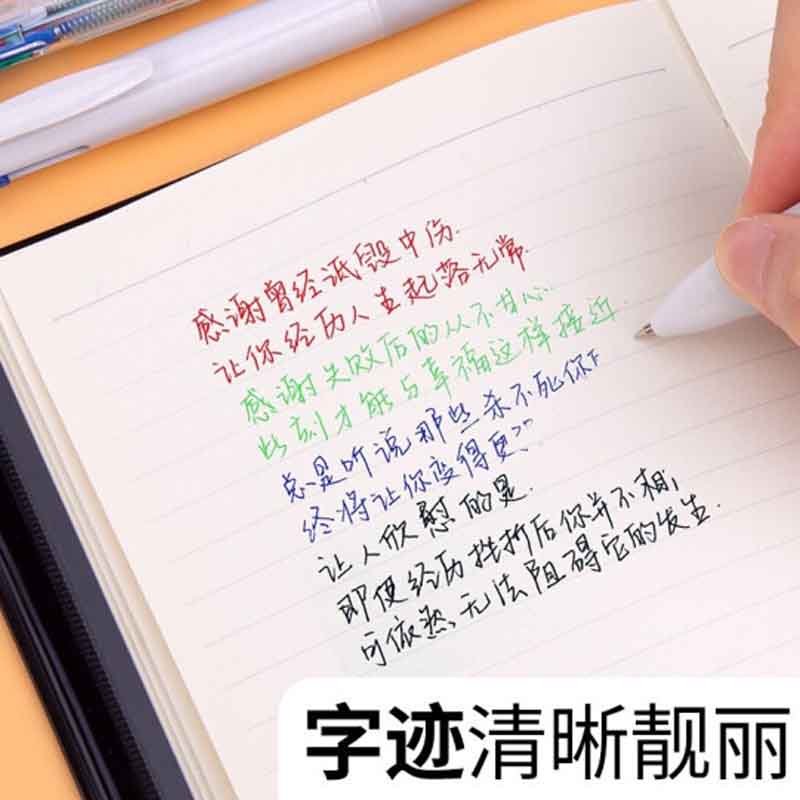 感谢曾经诋毁中伤.
让你经历人生起落无常.
感谢失败后的从不甘心.
此刻才能与幸福这样接近.
总是听说那些杀不死你
终将让你变得更
让人欣慰的是.
即便经历挫折后你并不相,
可依然,无法阻碍它的发生.
字迹清晰靓丽